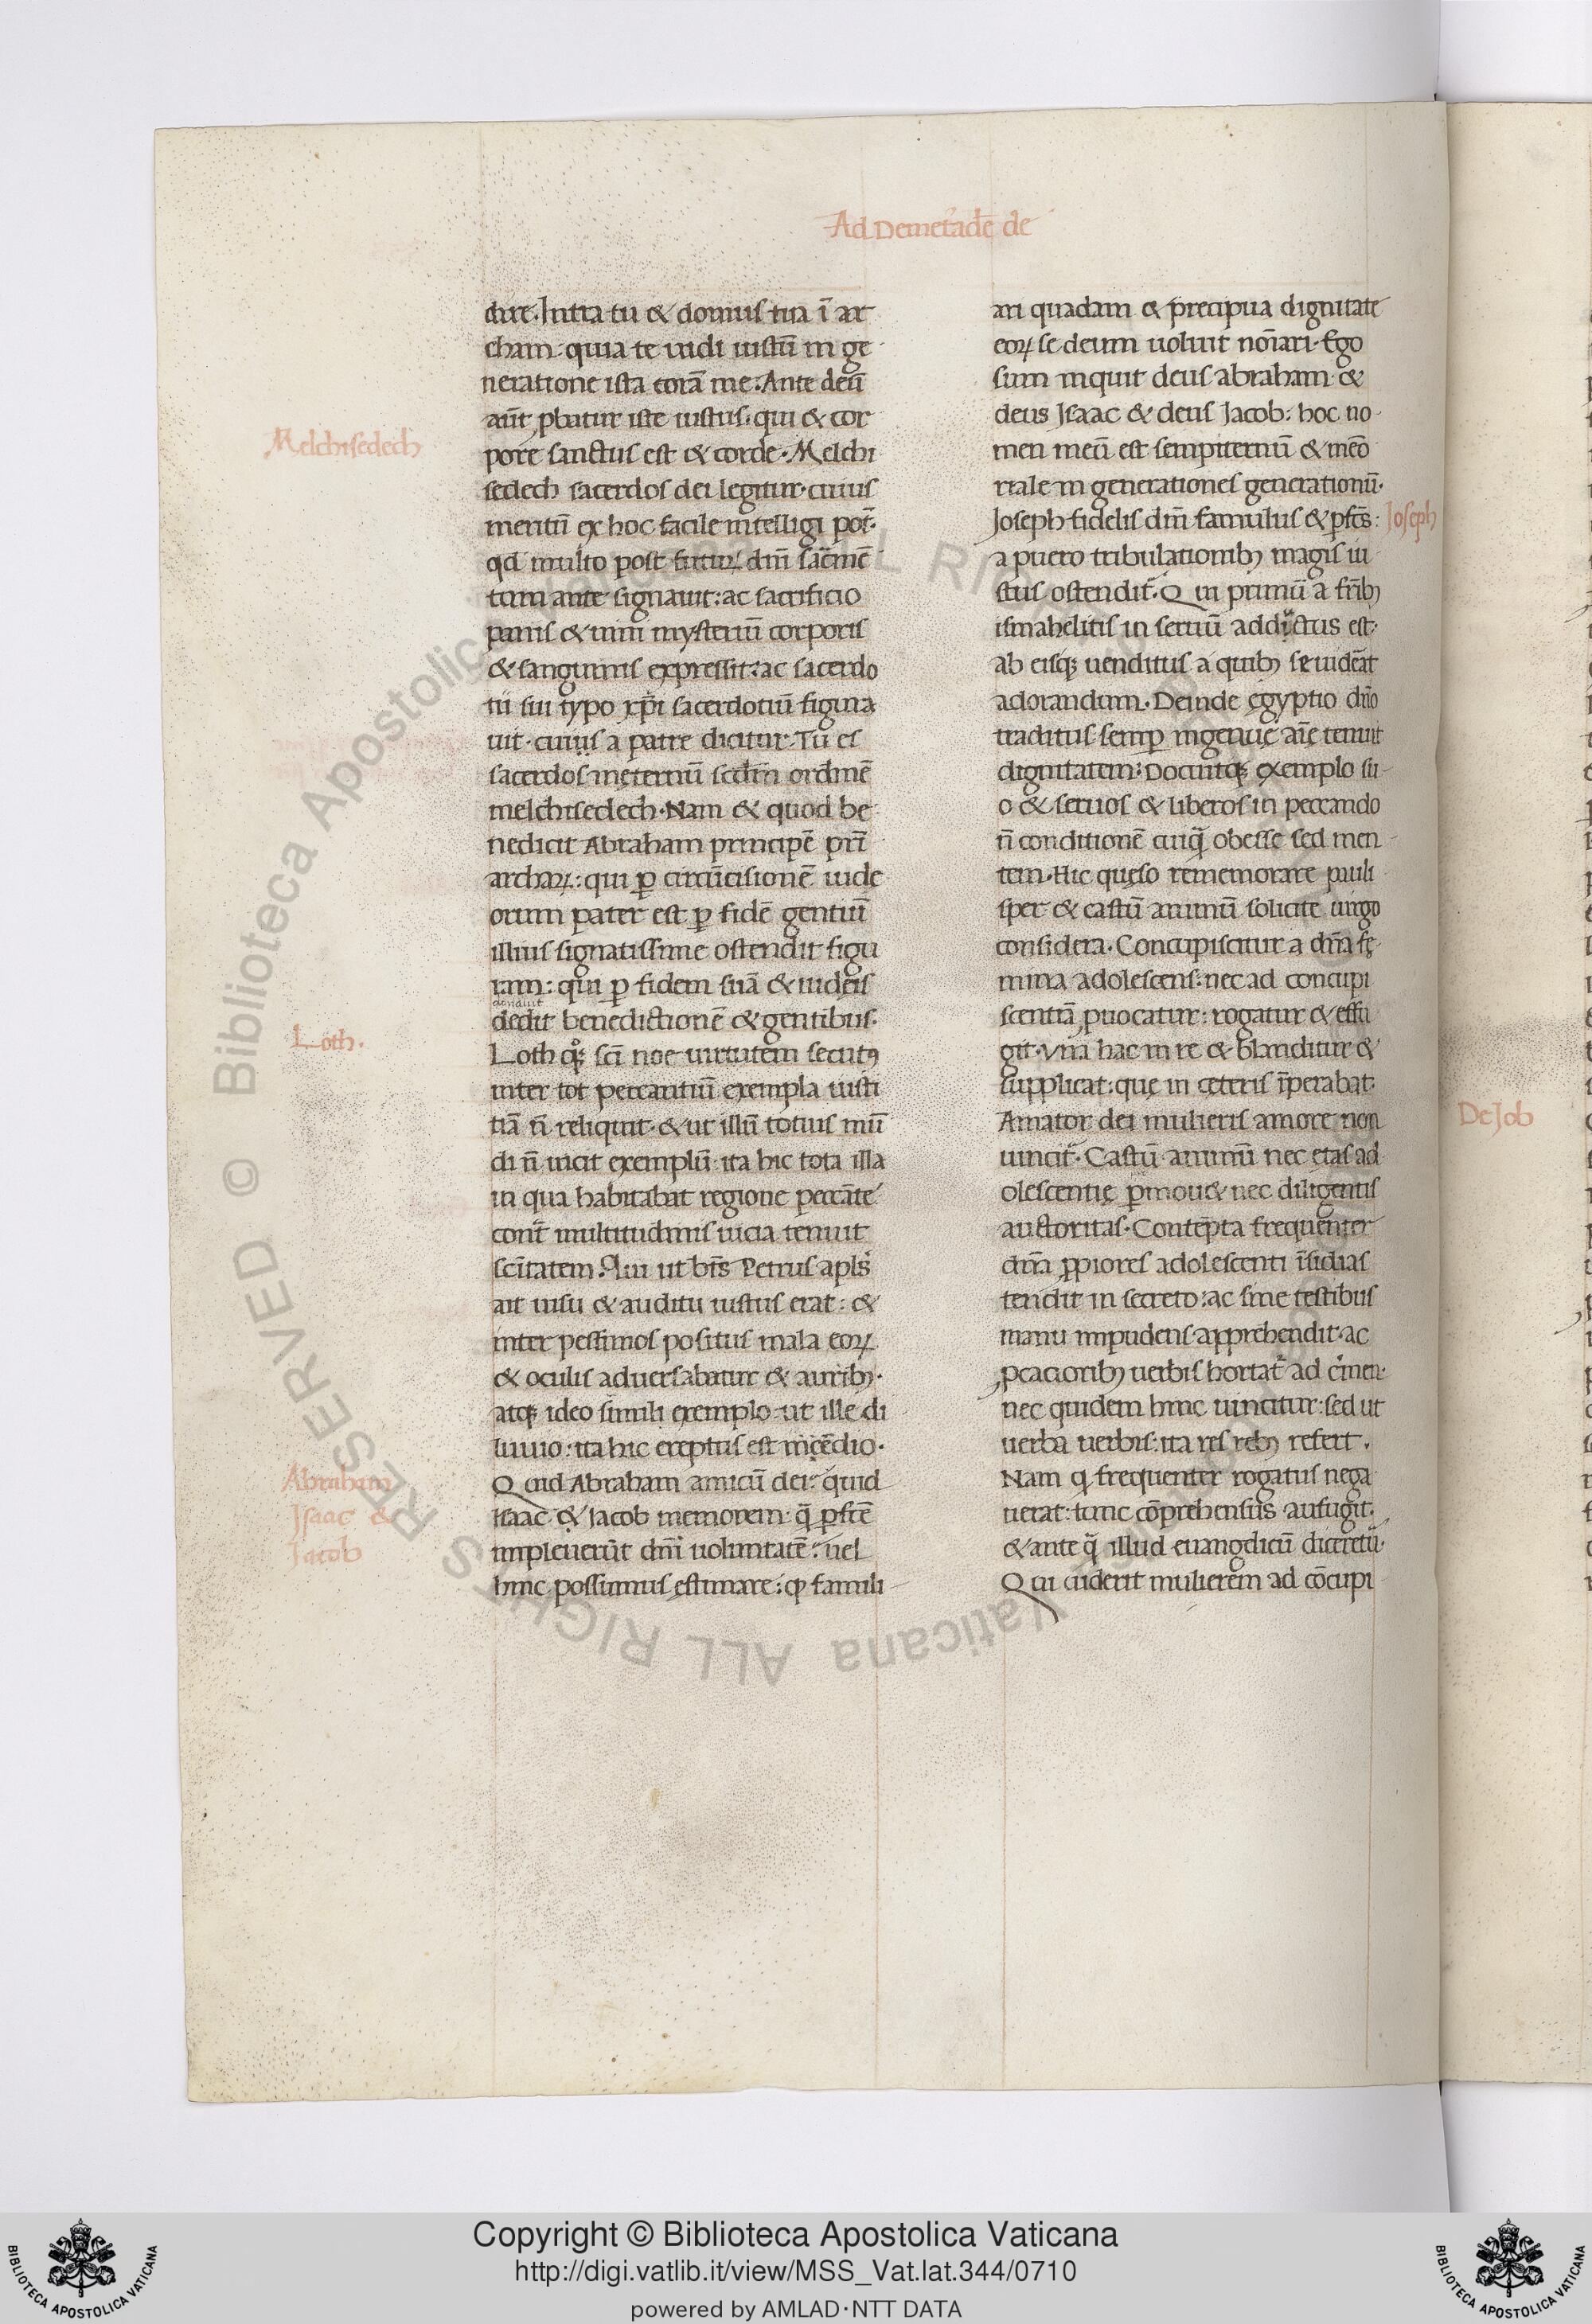 Ad Demet̾adē de
dire. Intra tu & domus tua ī ar
cham: quia te uidi iustū in ge
neratione ista corā me: Ante deū
aūt ꝓbatur iste iustus: qui & cor
pore sanctus est & corde. Melchi
Melchisedech
sedech sacerdos dei legitur: cuius
meritū ex hoc facile intelligi pot̄.
qd multo post futuꝝ dn̄i sac̄mē
tum ante signauit: ac sacrificio
panis & uini mysteriū corporis
& sanguinis expressit: ac sacerdo
tii sui typo xp̄i sacerdotiū figura
uit. cuius a patre dicitur. Tu es
sacerdos in ęternū scdm̄ ordinē
melchisedech. Nam & quod be
nedicit Abraham principē pr̄i
archaꝝ: qui ꝑ circūcisionē iude
orum pater est ꝑ fidē gentiū
illius signatissime ostendit figu
ram: qui ꝑ fidem suā & iudeis
donauit
dedit benedictionē & gentibus.
Loth.
Loth qͦꝫ sc̄i noe uirtutem secutꝰ
inter tot peccantiū exempla iusti
tiā n̄ reliquit. & ut illū totius mū
di n̄ uicit exemplū: ita hic tota illa
in qua habitabat regione peccāte
cont̄ multitudinis uicia tenuit
sc̄itatem. Qui ut bt̄s Petrus apl̄s
ait uisu & auditu iustus erat: &
inter pessimos positus mala eoꝝ
& oculis aduersabatur & auribꝫ.
atqꝫ ideo simili exemplo: ut ille di
luuio: ita hic ereptus est incēdio.
Abraham
Isaac &
Jacob
Quid Abraham amicū dei: quid
isaac & Jacob memorem: q̄ ꝑfctē
impleuerūt dn̄i uoluntatē: uel
hinc possumus ęstimare: ꝙ famili
ari quadam & precipua dignitate
eoꝝ se deum uoluit noīari. Ego
sum inquit deus abraham &
deus Isaac & deus Jacob: hoc no
men meū est sempiternū & mēo
riale in generationes generationū.
Joseph fidelis dn̄i famulus & ꝑfcs̄:
Joseph
a puero tribulationibꝫ magis iu
stus ostendit̄. Qui primū a fr̄ibꝫ
ismahelitis in seruiū addictus est:
ab eisqꝫ uenditus a quibꝫ se uidēat
adorandum. Deinde ęgyptio dn̄o
traditus semꝑ ingenuę aīę tenuit
dignitatem: Docuitqꝫ exemplo su
o & seruos & liberos in peccando
n̄ conditionē cuiq̄ obesse sed men
tem. Hic quęso rememorare pauli
sper & castū animū solicite uirgo
considera. Concupiscitur a dn̄a fę
mina adolescens: nec ad concupi
scentiā ꝓuocatur: rogatur & effu
git. Vna hac in re & blanditur &
supplicat: quę in ceteris īperabat.
Amator dei mulieris amore non
uincit̄. Castū animū nec etas ad
olescentię ꝑmou& nec diligentis
auctoritas. Contēpta frequenter
dn̄a ꝓpiores adolescenti īsidias
tendit in secreto: ac sine testibus
manu impudens apprehendit: ac
ꝓcacioribꝫ uerbis hortat̄ ad c̾men.
nec quidem hinc uincitur: sed ut
uerba uerbis: ita res rebꝫ refert.
Nam q frequenter rogatus nega
uerat: tunc cōprehensus aufugit.
& ante q̄ illud euangelicū diceret̄.
Qui uiderit mulierem ad cōcupi
De Job
Copyright © Biblioteca Apostolica Vaticana
http://digi.vatlib.it/view/MSS_Vat.lat.344/0710
powered by AMLAD·NTT DATA
BIBLIOTECA APOSTOLICA VATICANA
BIBLIOTECA APOSTOLICA VATICANA